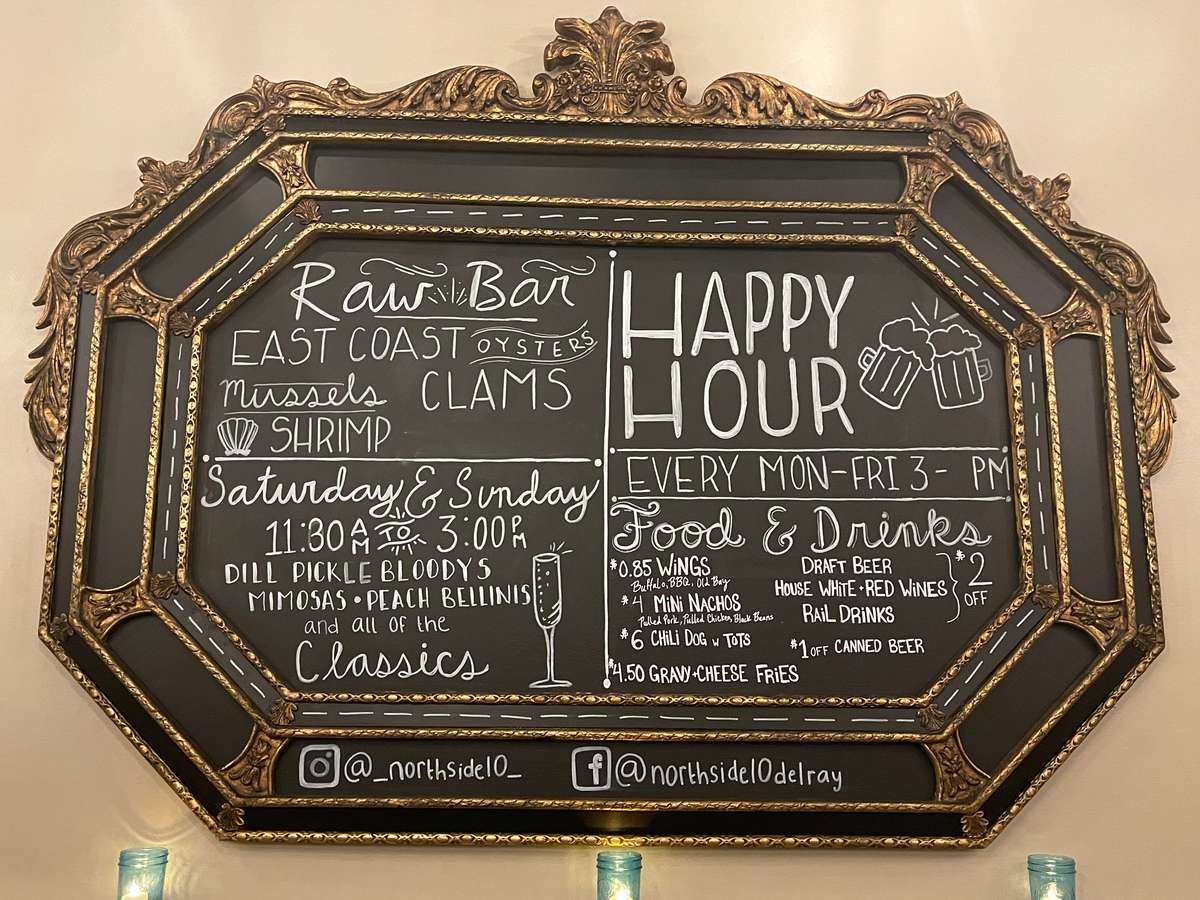 Raw Bar
EAST COAST OYSTERS
Mussels CLAMS
SHRIMP
Saturday & Sunday
11:30 AM TO 3:00 PM
DILL PICKLE BLOODYS
MIMOSAS • PEACH BELLINIS
and all of the
Classics
HAPPY
HOUR
EVERY MON-FRI 3- PM
Food & Drinks
$0.85 WINGS
Buffalo, BBQ, Old Bay
$4 MINI NACHOS
Pulled Pork, Pulled Chicken, Black Beans
$6 CHILI DOG w TOTS
$4.50 GRAVY+CHEESE FRIES
DRAFT BEER
HOUSE WHITE + RED WINES
RAIL DRINKS
$2 OFF
$1 OFF CANNED BEER
@_northside10_
f @northside10delray